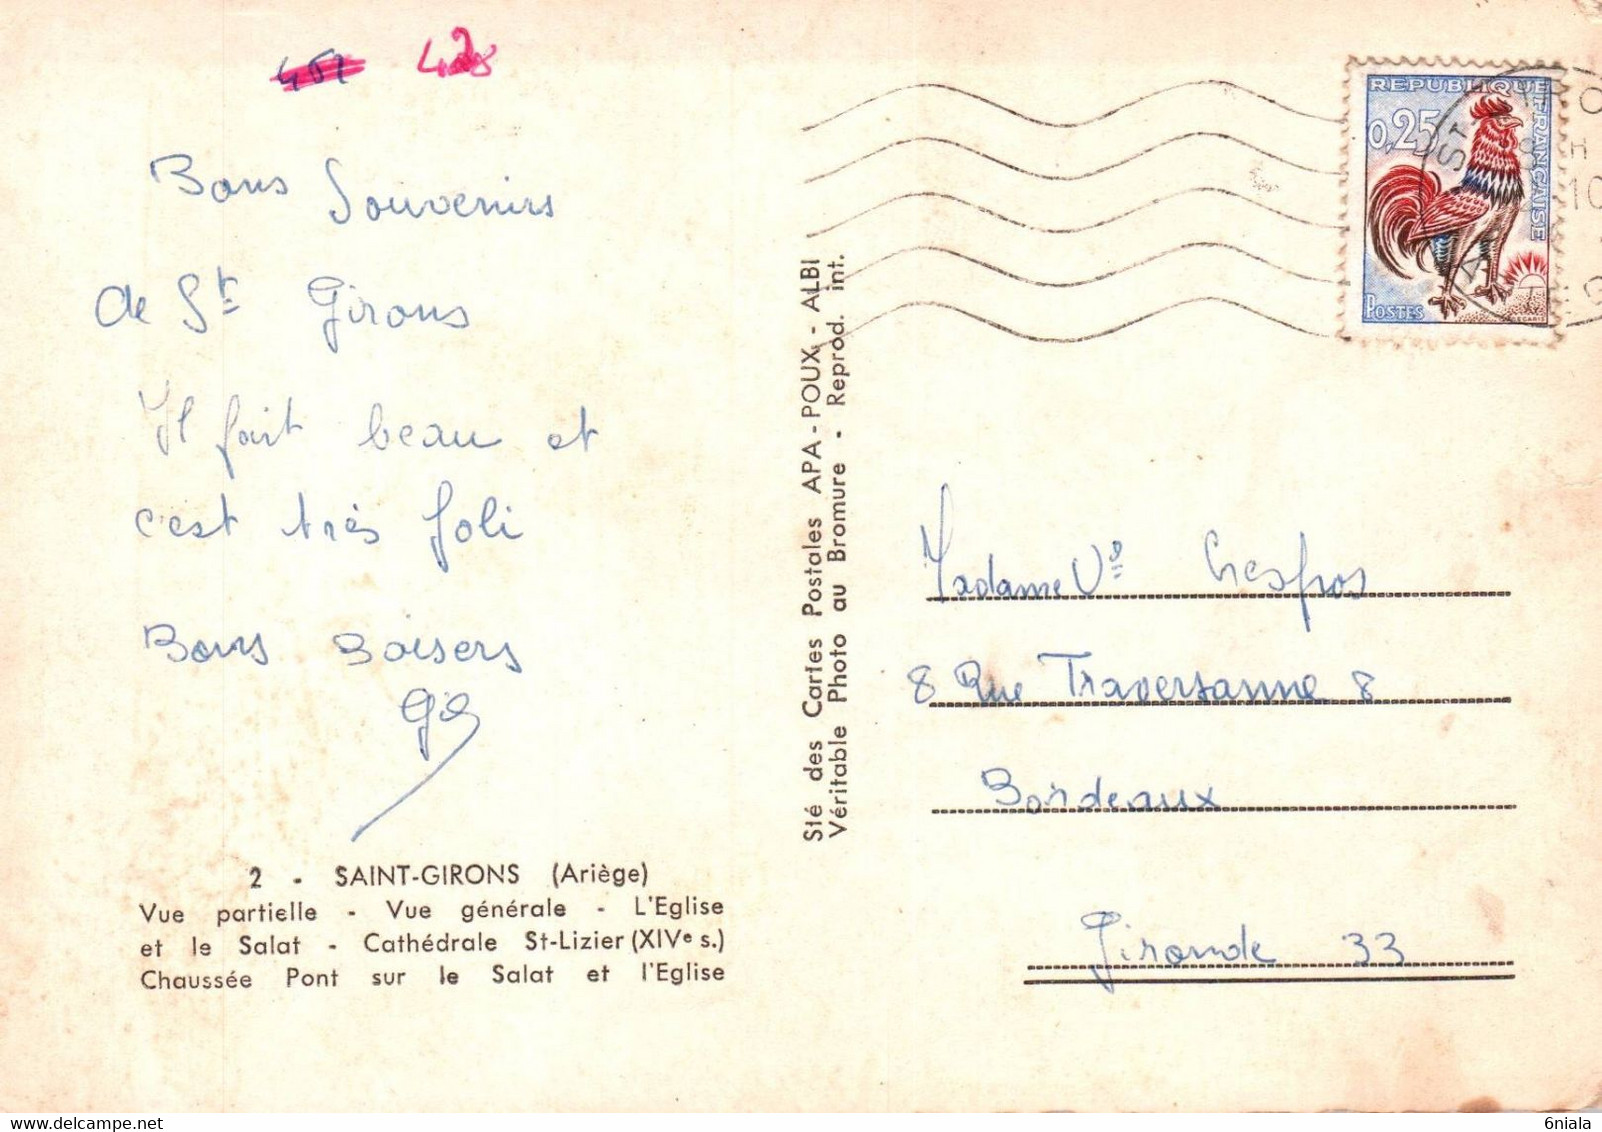 451 428
Bons Souvenirs
de St Girons
Il fait beau et
c'est très joli
Bons Baisers
2 - SAINT-GIRONS (Ariège)
Vue partielle - Vue générale - L'Eglise
et le Salat - Cathédrale St-Lizier (XIVe s.)
Chaussée Pont sur le Salat et l'Eglise
Sté des Cartes Postales APA-POUX - ALBI
Véritable Photo au Bromure - Reprod. int.
REPUBLIQUE FRANCAISE
0,25
POSTES
Madame Ve
8 Rue Traversanne 8
Bordeaux
Gironde 33
6niala